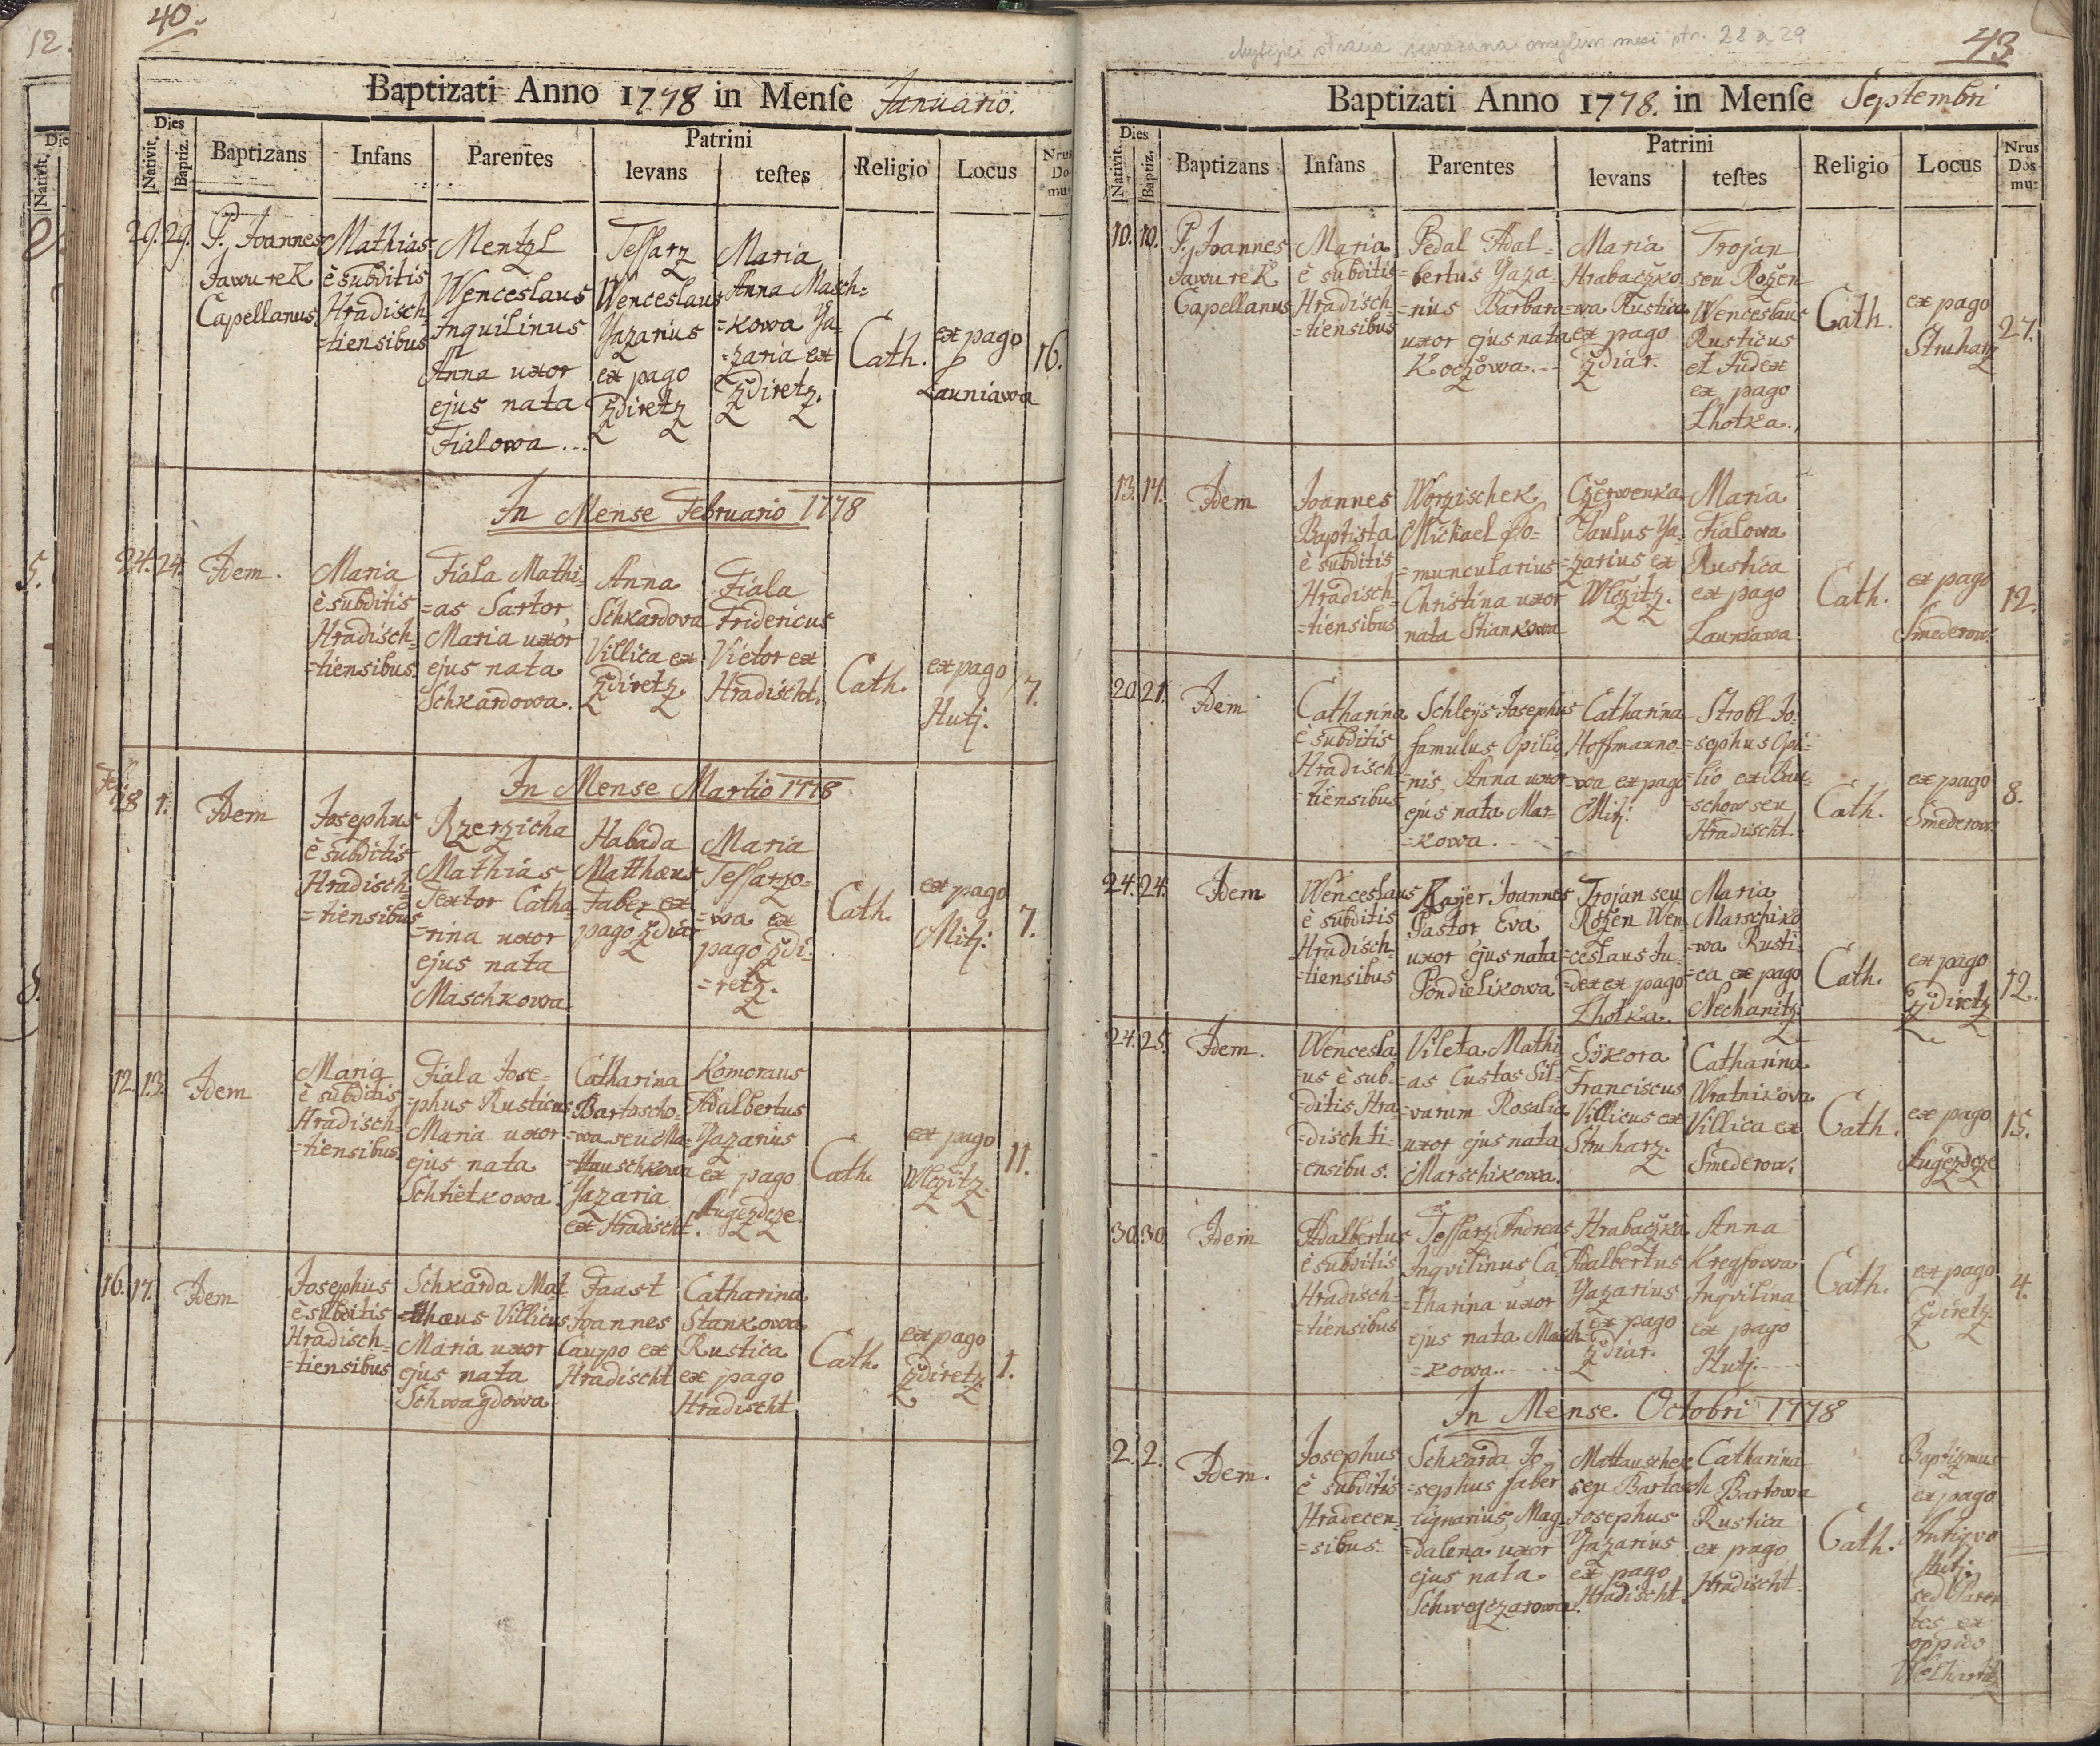 12.
40.
Baptizati Anno 1778 in Mense Januario.
Dies
Nativit.
Baptiz.
Baptizans
Infans
Parentes
Patrini
levans
testes
Religio
Locus
Nrus
Do-
mus
29. 29.
P. Joannes
Jawurek
Capellanus
Mathias
è subditis
Hradisch-
=tiensibus
Mentzl
Wenceslaus
Inquilinus
Anna uxor
ejus nata
Fialowa...
Tessarz
Wenceslaus
Yazarius
ex pago
Zdiretz
Maria
Anna Masch=
=kowa Ya-
=zaria ex
Zdiretz.
Cath.
ex pago
Launiawa
16.
In Mense Februario 1778
24. 24.
Idem.
Maria
è subditis
Hradisch-
=tiensibus.
Fiala Mathi-
=as Sartor,
Maria uxor
ejus nata
Schkardowa.
Anna
Schkardova
Villica ex
Zdiretz.
Fiala
Fridericus
Vietor ex
Hradischt.
Cath.
ex pago
Hutj.
7.
In Mense Martio 1778.
28 1.
Idem
Josephus
è subditis
Hradisch=
=tiensibus
Rzerzicha
Mathias
Textor Catha-
=rina uxor
ejus nata
Maschkowa
Habada
Matthæus
Faber ex
pago Zdiar
Maria
Tessarzo-
=wa ex
pago Zdi-
=retz.
Cath.
ex pago
Mitj.
7.
12. 13.
Idem
Maria
è subditis
Hradisch-
=tiensibus.
Fiala Jose-
=phus Rusticus
Maria uxor
ejus nata
Schtetkowa.
Catharina
Bartoscho-
=wa seu Ma-
=ttauschkowa
Yazaria
ex Hradischt.
Komoraus
Adalbertus
Yazarius
ex pago
Augezdcze.
Cath.
ex pago
Wlczitz.
11.
16. 17.
Idem
Josephus
è subditis
Hradisch=
=tiensibus
Schkarda Mat-
=thæus Villicus
Maria uxor
ejus nata
Schwagdowa
Faast
Joannes
Caupo ex
Hradischt
Catharina
Stankowa
Rustica
ex pago
Hradischt
Cath.
ex pago
Zdiretz.
1.
str. 28 a 29
43
Baptizati Anno 1778. in Mense Septembri
Dies
Nativit.
Baptiz.
Baptizans
Infans
Parentes
Patrini
levans
testes
Religio
Locus
Nrus
Dos
mu=
10. 10.
P. Joannes
Jawurek
Capellanus
Maria
è subditis
Hradisch-
=tiensibus
Pedal Adal=
=bertus Yaza-
=rius Barbara
uxor ejus nata
Koczowa.--
Maria
Hrabaczko-
=wa Rustica
ex pago
Zdiar.
Trojan
seu Rozen
Wenceslaus
Rusticus
et Judex
ex pago
Lhotka.
Cath.
ex pago
Struharz
27.
13. 14.
Idem
Joannes
Baptista
è subditis
Hradisch-
=tiensibus
Worzischek
Michael Do=
=muncularius
Christina uxor
nata Stiankowa
Czerwenka
Paulus Ya-
=zarius ex
Wlczitz.
Maria
Fialowa
Rustica
ex pago
Launiawa
Cath.
ex pago
Smederow.
12.
20. 21.
Idem
Catharina
è subditis
Hradisch-
=tiensibus
Schleys Josephus
famulus Opilio-
=nis, Anna uxor
ejus nata Mar-
=kowa.
Catharina
Hoffmanno-
=wa ex pago
Mitj.
Strobl Jo-
=sephus Opi-
=lio ex
=schow seu
Hradischt.
Cath.
ex pago
Smederow.
8.
24. 24.
Idem
Wenceslaus
è subditis
Hradisch-
=tiensibus
Kayer Joannes
Pastor Eva
uxor ejus nata
Pondielikowa
Trojan seu
Rozen Wen-
=ceslaus Ju-
=dex ex pago
Lhotka.
Maria
Marschiko-
=wa Rusti-
=ca ex pago
Nechanitz
Cath.
ex pago
Zdiretz
12.
24. 25.
Idem.
Wencesla-
=us è sub-
=ditis Hra-
=dischti-
=ensibus.
Vileta Mathi-
=as Custos Sil-
=varum Rosalia
uxor ejus nata
Marschikowa.
Sykora
Franciscus
Villicus ex
Struharz.
Catharina
Wratnikova
Villica ex
Smederow.
Cath.
ex pago
Augezdcze
15.
30. 30.
Idem
Adalbertus
è subditis
Hradisch-
=tiensibus
Tessarz Andreas
Inqvilinus Ca-
=tharina uxor
ejus nata Masch-
=kowa.
Hrabaczka
Adalbertus
Yazarius
ex pago
Zdiar.
Anna
Kregsowa
Inqvilina
ex pago
Hutj.
Cath.
ex pago
Zdiretz.
4.
In Mense. Octobri 1778
2. 2.
Idem.
Josephus
è subditis
Hradecen-
=sibus.
Schkarda Jo-
=sephus faber
lignarius, Mag-
=dalena uxor
ejus nata
Schwegczarowa.
Mattauschek
seu Bartosch
Josephus
Yazarius
ex pago
Hradischt.
Catharina
Bartowa
Rustica
ex pago
Hradischt.
Cath.
Baptizmus
ex pago
Antiqvo
Hutj.
sed Paren-
tes ex
oppido